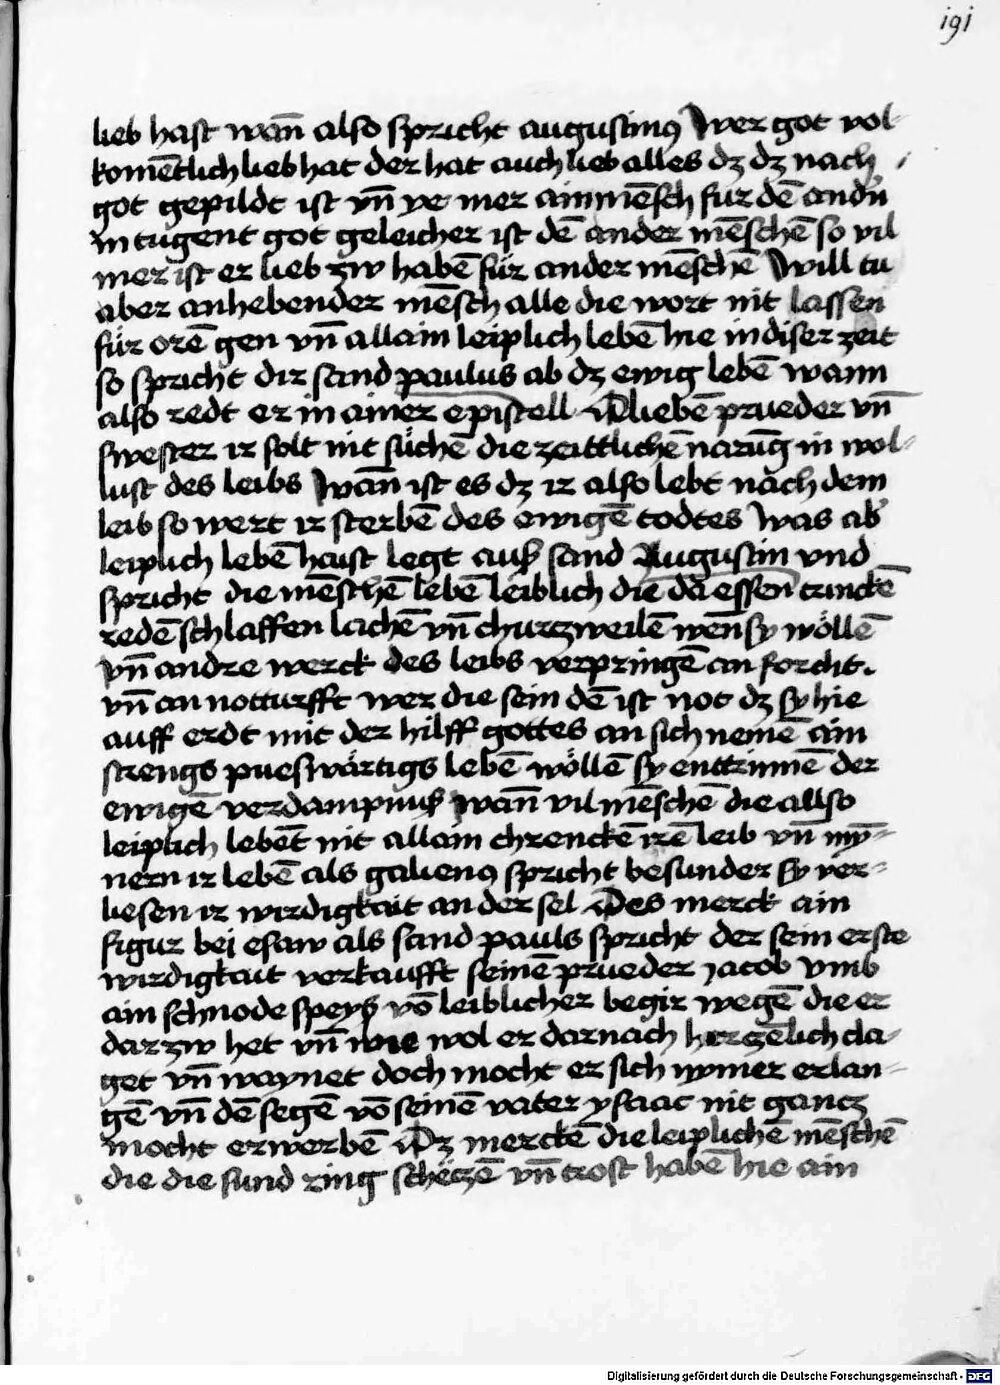 191
lieb hast wan̄ also spricht augustinꝯ Wer got vol-
komētlich lieb hat der hat auch lieb alles dz dz nach
got gepildt ist vn̄ ye mer ain mēsch fur dē andn̄
in tugent got geleicher ist dē ander mēschē so vil
mer ist er lieb zw habē für ander mēschē Will tu
aber anhebender mēsch alle die wort nit lassen
für orē gen vn̄ allain leiplich lebē hie in diser zeit
so spricht dir sand paulus ab dz ewig lebē wann
also redt er in ainer epistell O lieben prueder vn̄
swester ir solt nit sůchē die zeittlichē narūg in wol-
lust des leibs Wan̄ ist es dz ir also lebt nach dem
leib so wert ir sterbē des ewigē todtes Was ab̾
leiplich lebē haist legt auß sand Augustin vnd
spricht die mēschē lebē leiblich die da essen trinckē
redē schlaffen lachē vn̄ churczweilē wen̄ sy wöllē
vn̄ andre werck des leibs verpringē an forcht.
vn̄ an notturfft wer die sein dē ist not dz sy hie
auff erdt mit der hilff gottes an sich nemē ain
strengs pueswärtigs lebē wöllē sy enttrinnē der
ewigē verdampnuß wan̄ vil mēschē die allso
leiplich lebēt nit allain chrenckē irē leib vn̄ mȳ-
nern ir lebē als galienꝯ spricht besunder sy ver-
liesen ir wirdigkait an der sel Des merck ain
figur bei esaw als sand pauls spricht der sein erste
wirdigkait verkaufft seinē prueder jacob vmb
ain schnode speyß vō leiblicher begir wegē die er
dar zw het vn̄ wie wol er darnach herczēlich cla-
get vn̄ waynet doch mocht er sich nymer erlan-
gē vn̄ dē segē vō seinē vater ysaac nit gancz
mocht erwerbē Dz merckē die leiplichē mēschē
die die sund ring schēczē vn̄ trost habē hie ain
Digitalisierung gefördert durch die Deutsche Forschungsgemeinschaft - DFG